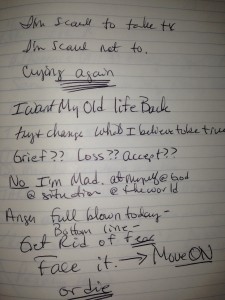 I'm scared to take tx
I'm scared not to.
Crying again
I want My Old life Back
try + change what I believe take time
Grief?? Loss?? accept??
No I'm Mad. at myself @ God
@ situation @ the world
Anger full blown today -
Bottom line -
Get Rid of fear
Face it. → Move ON
or die